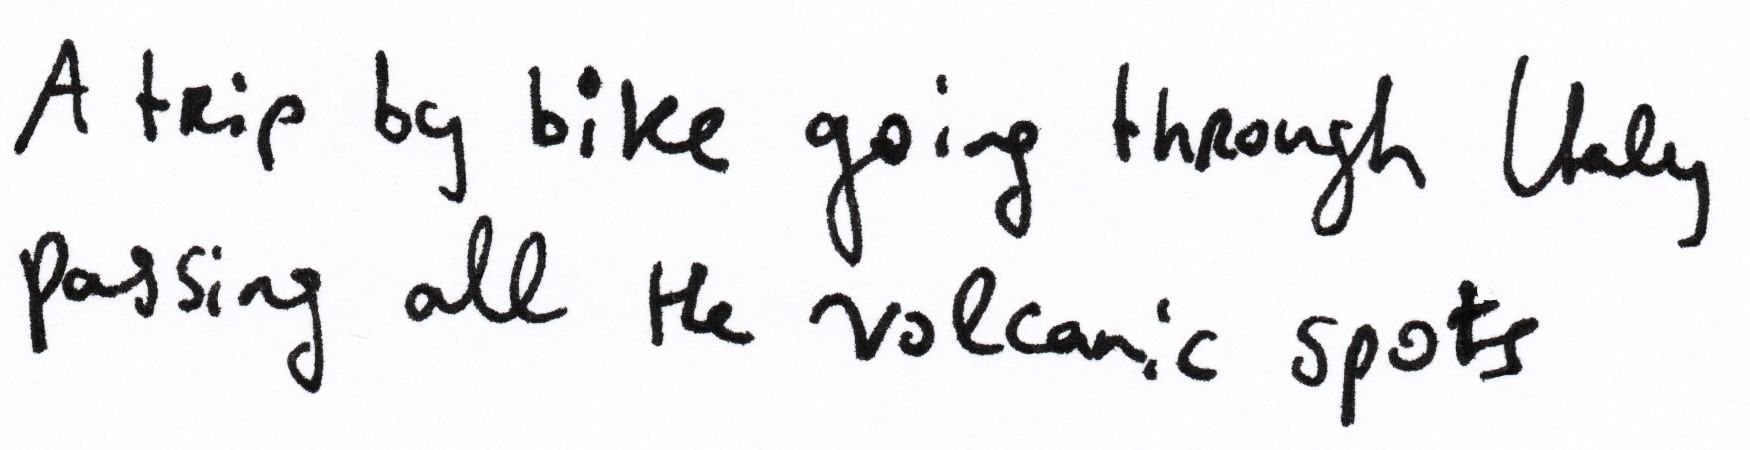 A trip by bike going through Italy
passing all the volcanic spots